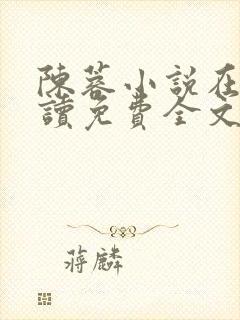 陳蓉小說在
讀免費全文
蔣麟